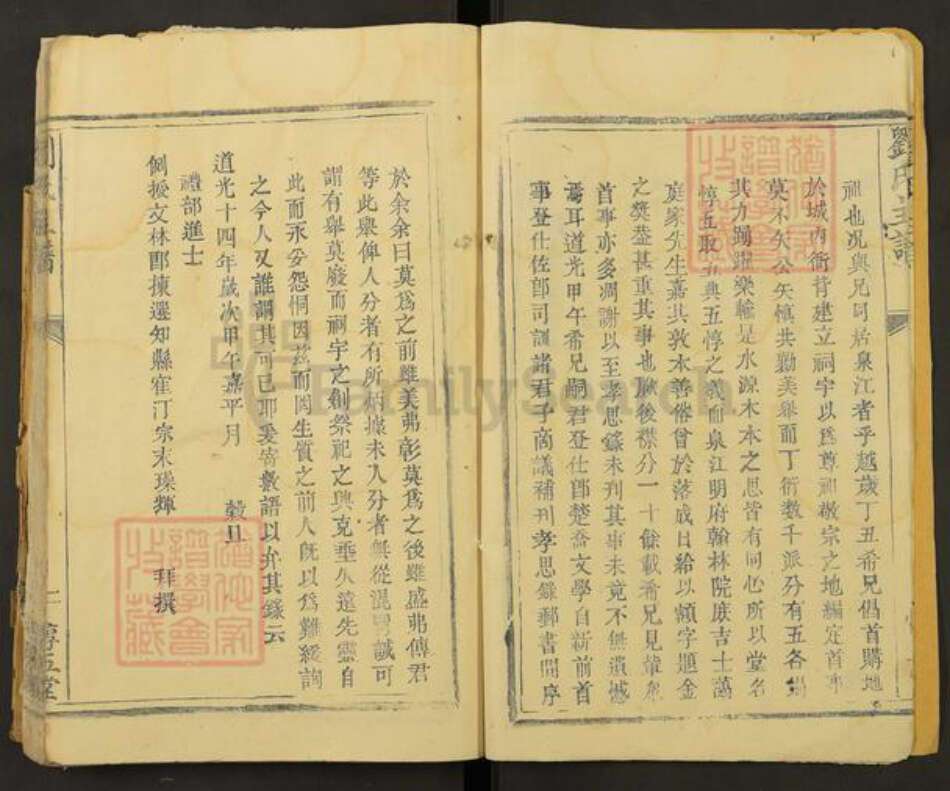 劉氏主譜
祖也况與兄同居泉江者乎越歲丁丑希兄倡首購地
於城內衙背建立祠宇以爲尊祖敬宗之地編定首事
莫不矢公矢慎共勷美舉而丁衍數千派分有五各揭
其力踴躍樂輸是水源木本之思皆有同心所以堂名
惇五取五典五惇之義而泉江明府翰林院庶吉士萬
庭家先生嘉其敦本善俗曾於落成日給以額字題金
之獎蓋甚重其事也厥後襟分一十餘載希兄見輩衆
首事亦多凋謝以至孝思錄未刊其事未竟不無遺憾
焉耳道光甲午希兄嗣君登仕郎楚喬文學自新前首
事登仕佐郎司訓諸君子商議補刊孝思錄郵書問序
於余余曰莫爲之前雖美弗彰莫爲之後雖盛弗傳君
等此舉俾人分者有所柄據未入分者無從混冒誠可
謂有舉莫廢而祠宇之創祭祀之典克垂久遠先靈自
此而永妥怨恫因茲而罔生質之前人既以爲難緩詢
之今人又誰謂其可已耶爰寄數語以弁其錄云
道光十四年歲次甲午嘉平月 穀旦
禮部進士
例授文林郎揀選知縣宗末璪輝 拜撰
二 惇五堂
FamilySearch